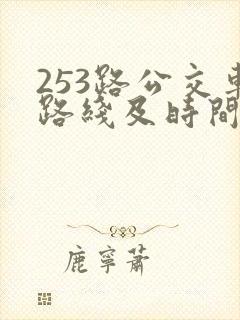 253路公交車
路綫及時間
鹿寧蕭